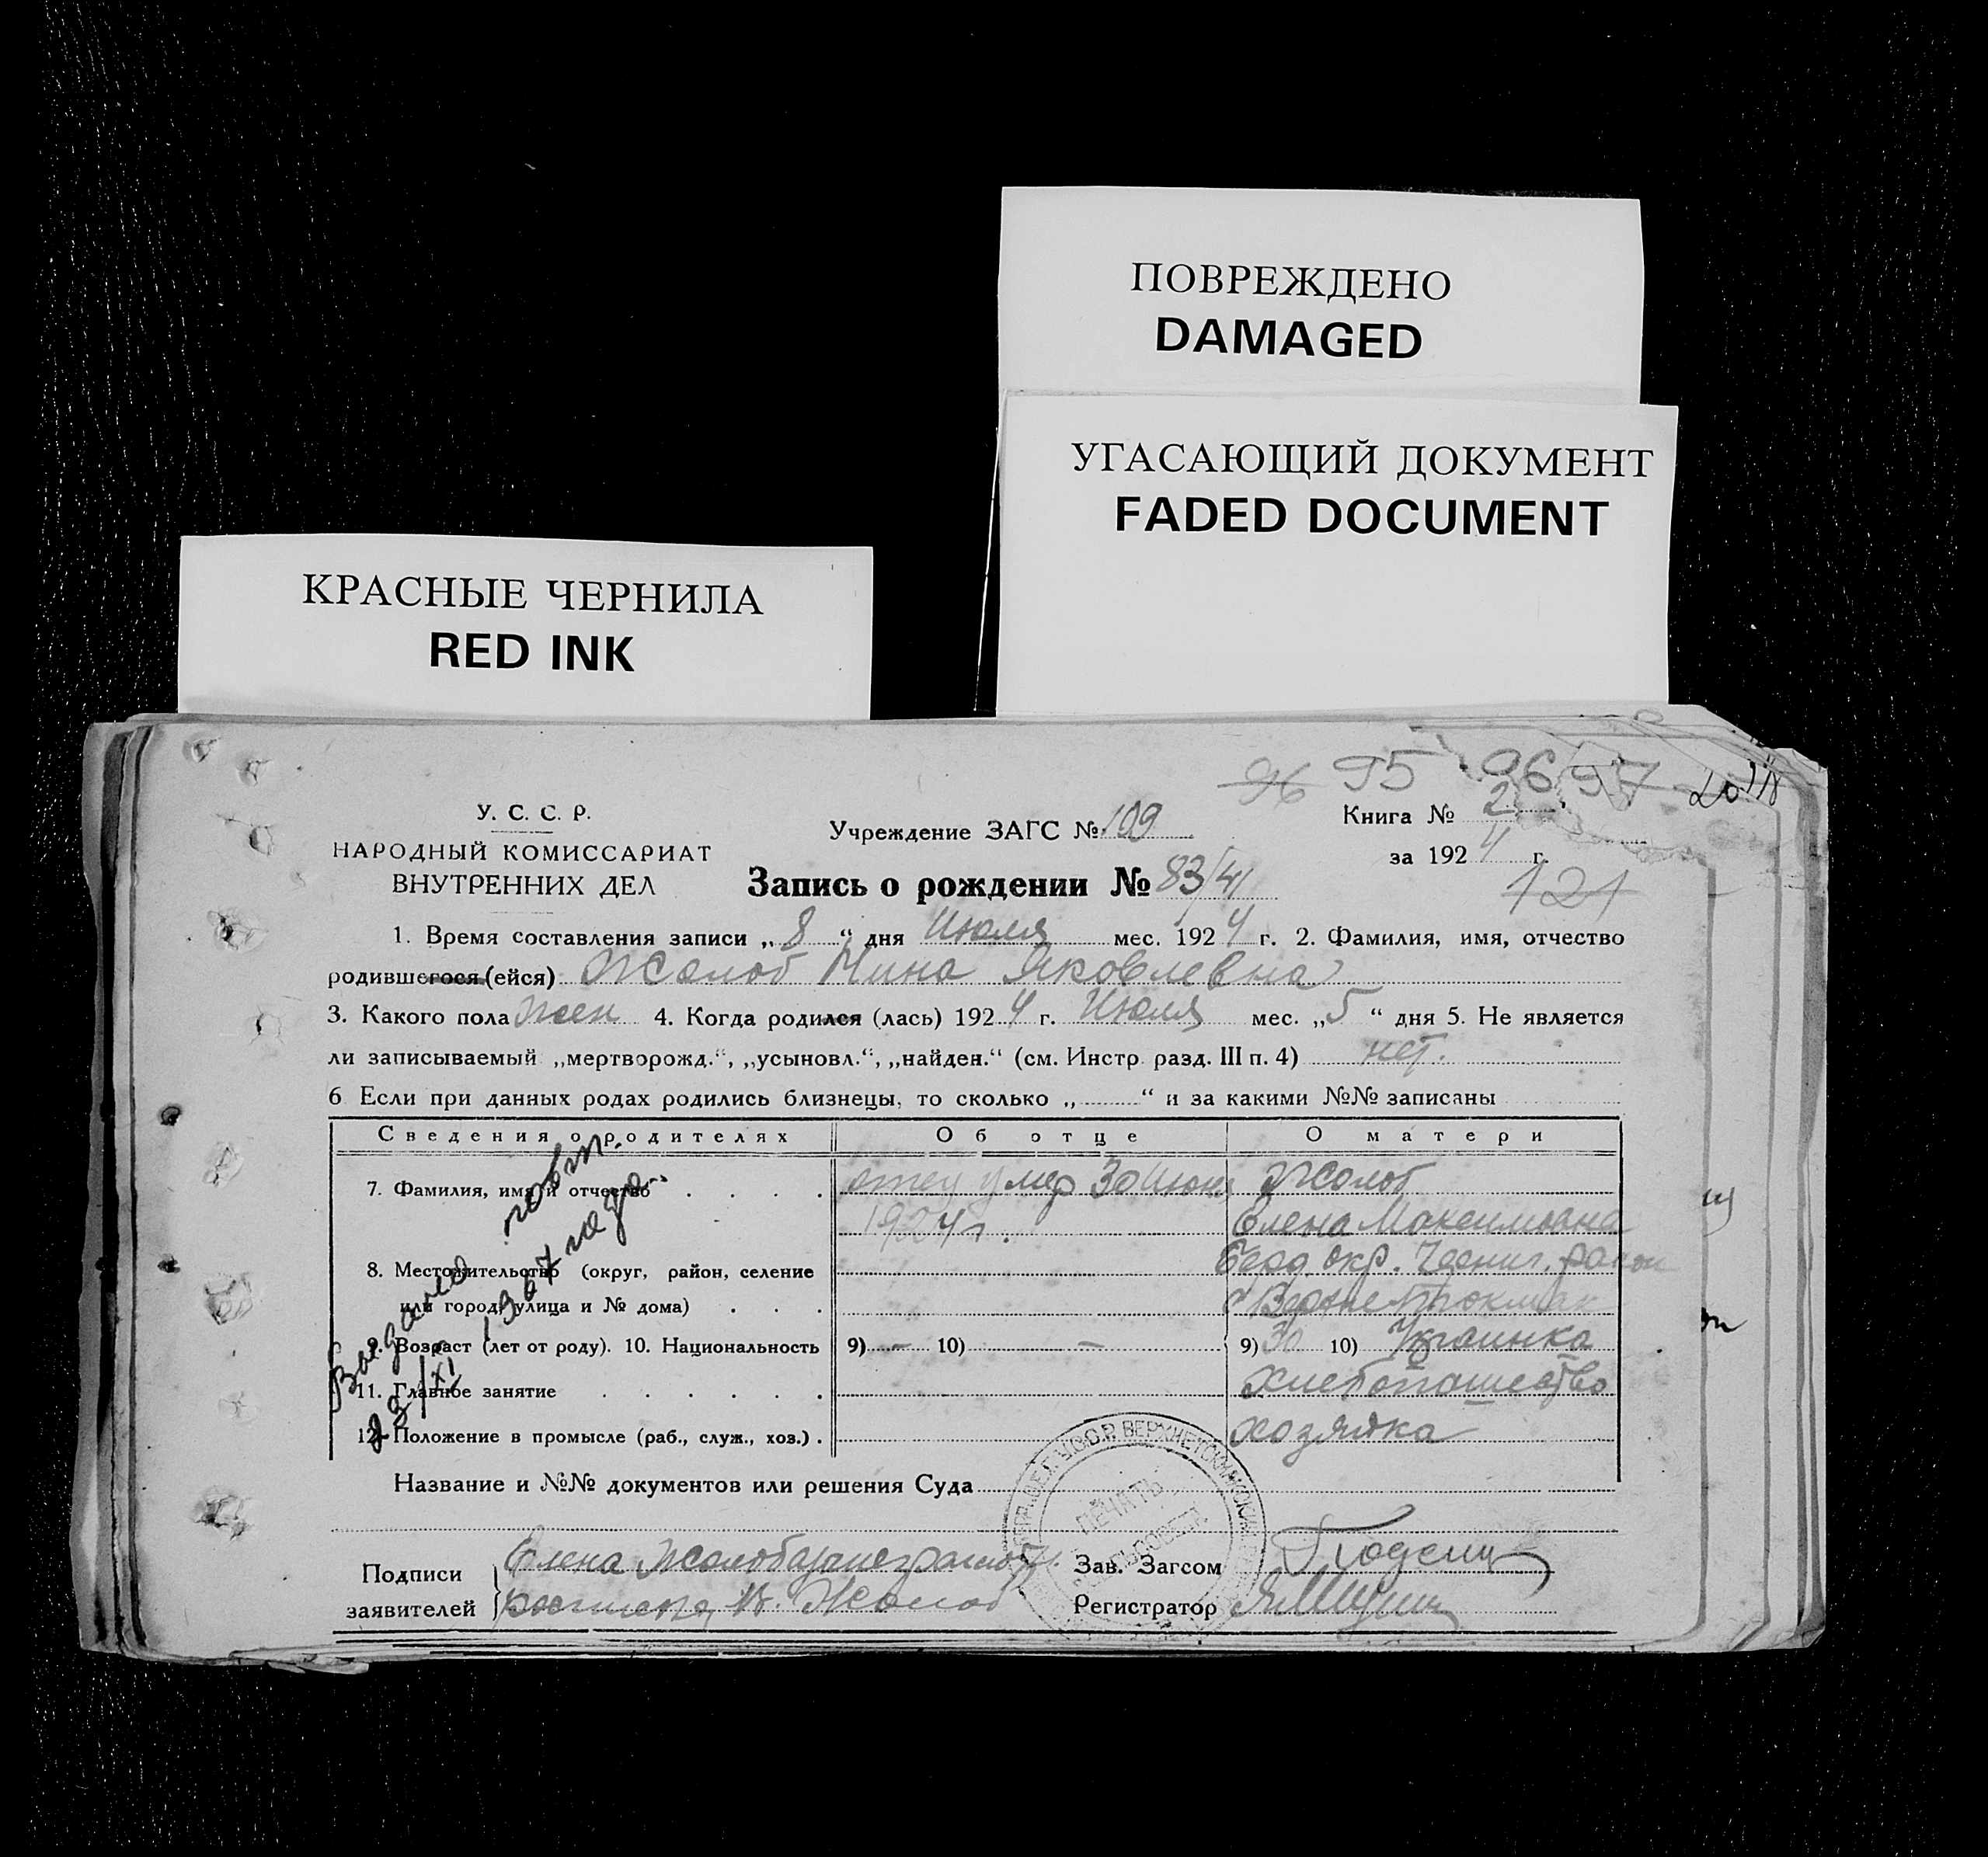 ПОВРЕЖДЕНО
DAMAGED
УГАСАЮЩИЙ ДОКУМЕНТ
FADED DOCUMENT
КРАСНЫЕ ЧЕРНИЛА
RED INK
96 95 96 97
У. С. С. Р.
НАРОДНЫЙ КОМИССАРИАТ
ВНУТРЕННИХ ДЕЛ
Учреждение ЗАГС № 109
Книга № 2
за 1924 г.
121
Запись о рождении № 83/41
1. Время составления записи „8“ дня Июля мес. 1924 г. 2. Фамилия, имя, отчество
родившегося (ейся) Жолоб Нина Яковлевна
3. Какого пола жен 4. Когда родился (лась) 1924 г. Июля мес. „5“ дня 5. Не является
ли записываемый „мертворожд.“, „усыновл.“, „найден.“ (см. Инстр. разд. III п. 4) нет.
6 Если при данных родах родились близнецы, то сколько „ “ и за какими №№ записаны
Сведения о родителях Об отце О матери
7. Фамилия, имя и отчество . . . . отец умер 30 Июня Жолоб
1924 г. Елена Максимовна
8. Местожительство (округ, район, селение Берд. окр. Черниг. район
или город, улица и № дома) . . . Верхне Токмак
9. Возраст (лет от роду). 10. Национальность 9) — 10) — 9) 30 10) Украинка
11. Главное занятие . . . . . . Хлебопашество
12. Положение в промысле (раб., служ., хоз.) . хозяйка
Выдано повт.
23/XI 1367 года.
Название и №№ документов или решения Суда
ПЕЧАТЬ
СЕЛЬСОВЕТА
Подписи
заявителей
Елена Жолоб
В. Жолоб
Зав. Загсом
Регистратор